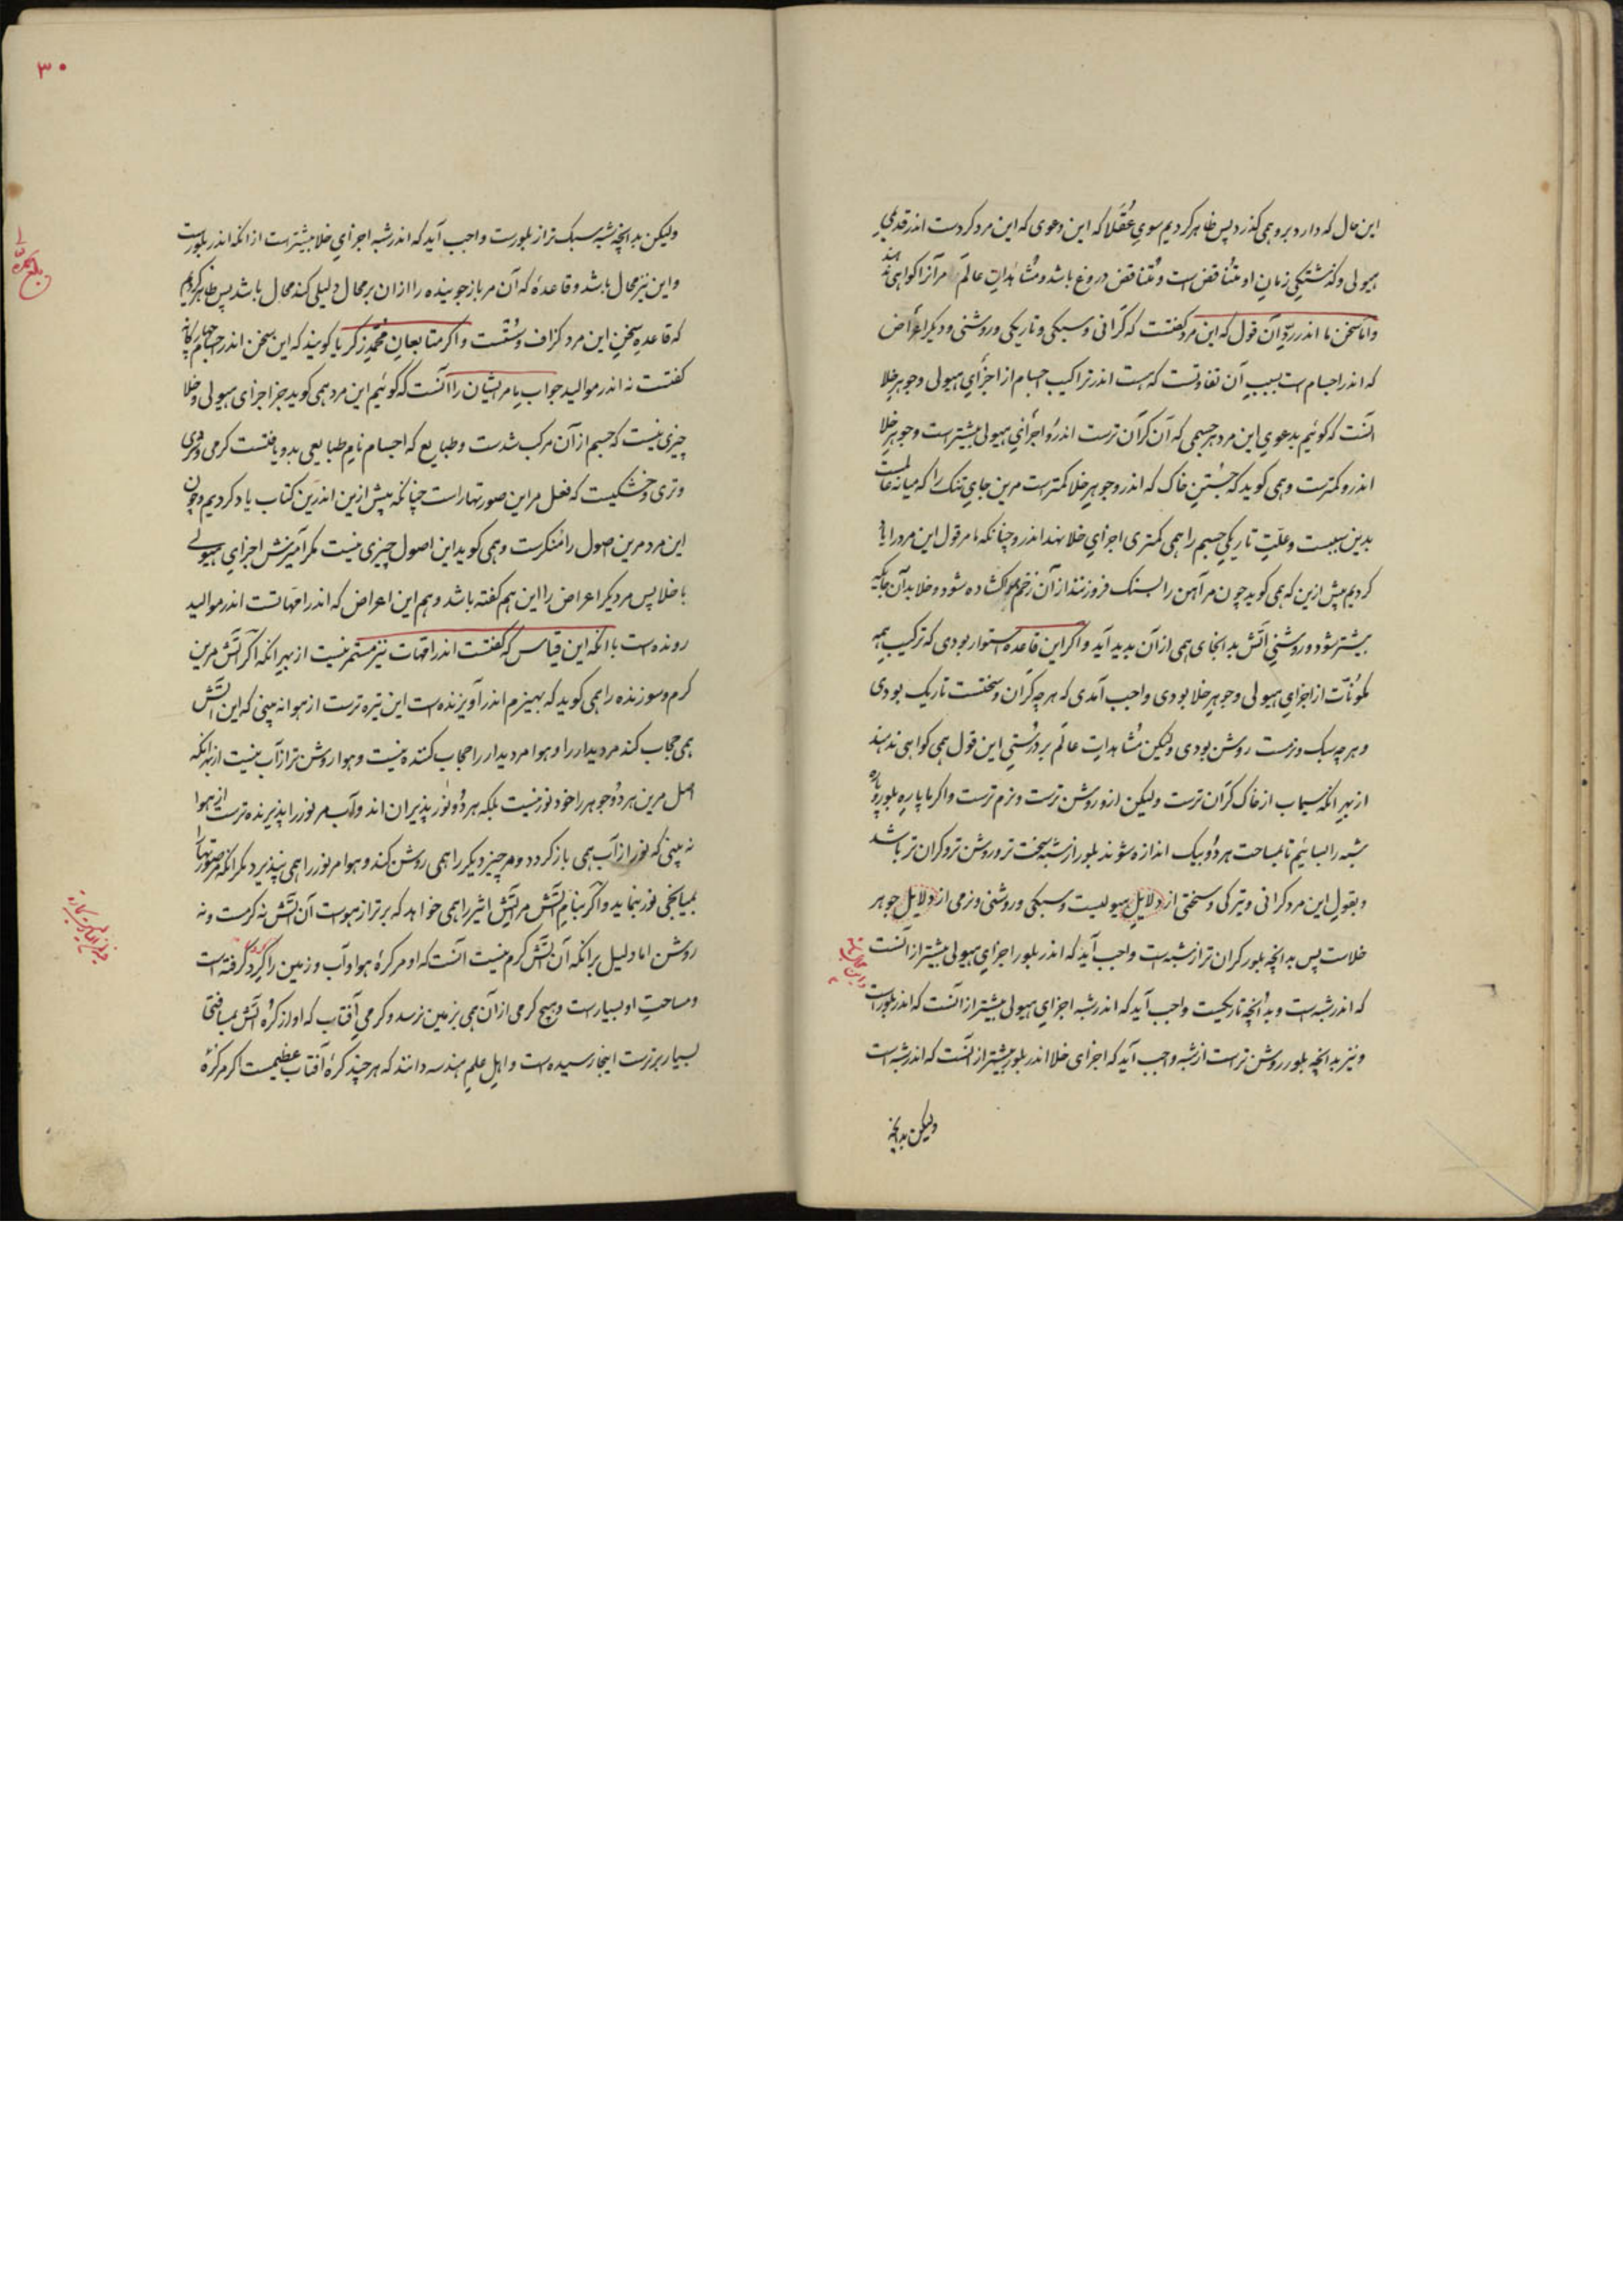 این حال که دارد برو همی گذرد پس ظاهر کردیم سوی عُقَلا که این دعوی که این مرد کردست اندر قدیمی
هیولی و گذشتگی زمان او متناقض است و متناقض دروغ باشد و مُشاهَداتِ عالَم مر آنرا گواهی ندهند
و اما سخن ما اندر ردِّ آن قول که این مرد گفتست که گرانی و سبکی و تاریکی و روشنی و دیگر اعراض
که اندر اجسام است بسببِ آن تفاوتست که هست اندر تراکیب اجسام از اجزای هیولی و جوهر خلا
آنست که گوئیم بدعویِ این مرد هر جسمی که آن گران ترست اندرو اجزای هیولی بیشترست و جوهر خلا
اندرو کمترست و همی گوید که جُستنِ خاک که اندرو جوهرِ خلا کمترست مرین جایِ تنگ را که میانه عالمست
بدین سببست و علّتِ تاریکیِ جسم را همی کمتری اجزایِ خلا نهد اندرو چنانکه ما مر قول این مرد را یاد
کردیم پیش ازین که همی گوید چون مر آهن را بسنگ فروزنند از آن زخم هوا گشاده شود و خلا بدآن جایگه
بیشتر شود و روشنیِ آتش بدانجای همی از آن پدید آید و اگر این قاعده استوار بودی که ترکیبِ همه
مکوّنات از اجزای هیولی و جوهرِ خلا بودی واجب آمدی که هر چه گران و سختست تاریک بودی
و هر چه سبک و نرمست روشن بودی ولیکن مُشاهداتِ عالَم بر درُستیِ این قول همی گواهی ندهند
از بهرِ آنکه سیماب از خاک گران ترست ولیکن ازو روشن ترست و نرم ترست و اگر ما پاره بلور و پاره
شبه را بسائیم تا بمساحت هر دُو بیک اندازه شوند بلور از شبه سخت تر و روشن تر و گران تر باشد
و بقولِ این مرد گرانی و تیرگی و سختی از دلایلِ هیولیست و سبکی و روشنی و نرمی از دلایلِ جوهر
خلاست پس بدانچه بلور گران تر از شبه است واجب آید که اندر بلور اجزایِ هیولی بیشتر از آنست
که اندر شبه است و بدانچه تاریکیست واجب آید که اندر شبه اجزایِ هیولی بیشتر از آنست که اندر بلورست
و نیز بدانچه بلور روشن ترست از شبه واجب آید که اجزای خلا اندر بلور بیشتر از آنست که اندر شبه است
ولیکن بدانچه
۳۰
ولیکن بدانچه شبه سبک تر از بلورست واجب آید که اندر شبه اجزایِ خلا بیشترست از آنکه اندر بلورست
و این نیز محال باشد و قاعدۀ که آن مر بازجوینده را از آن بر محال دلیلی کند محال باشد پس ظاهر کردیم
که قاعده سخنِ این مرد گزاف و سُست است و اگر متابعانِ مُحمّد زکریا گویند که این سخن اندر اجسام
گفتست نه اندر موالید جوابِ ما مر ایشان را آنست که گوئیم این مرد همی گوید جز اجزای هیولی و خلا
چیزی نیست که جسم از آن مرکب شدست و طبایع که اجسام نامِ طبایعی بدو یافتست گرمی و سردی
و تری و خشکیست که فعل مر این صورتهار است چنانکه پیش ازین اندرین کتاب یاد کردیم و چون
این مرد مرین اصول را منکرست و همی گوید این اصول چیزی نیست مگر آمیزش اجزایِ هیولی
با خلا پس مر دیگر اعراض را این هم گفته باشد و هم این اعراض که اندر امّهاتست اندر موالید
رونده است با آنکه این قیاس که گفتست اندر امّهات نیز مستمر نیست از بهرِ آنکه اگر آتش مرین
گرم و سوزنده را همی گوید که بهیزم اندر آویزنده است این تیره ترست از هوا نه بینی که این آتش
همی حجاب کند مر دیدار را و هوا مر دیدار را حجاب کننده نیست و هوا روشن تر از آب نیست از بهر آنکه
اصل مرین هر دُو جوهر را خود نور نیست بلکه هر دُو نور پذیران اند و آب مر نور را پذیرنده ترست از هوا
نه بینی که نور از آب همی باز گردد و مر چیز دیگر را همی روشن کند و هوا مر نور را همی نپذیرد مگر آنکه مر صورتها را
بمیانجی نور بنماید و اگر بنامِ آتش مر آتشِ اثیر را همی خواهد که برتر از هواست آن آتش نه گرمست و نه
روشن اما دلیل بر آنکه آن آتش گرم نیست آنست که او مر کرۀ هوا و آب و زمین را گِرد گرفته است
و مساحتِ او بسیارست و هیچ گرمی از آن همی بزمین نرسد و گرمیِ آفتاب که او از کُرۀ آتش بمسافتی
بسیار برترست اینجا رسیده است و اهلِ علمِ هندسه دانند که هر چند کرۀ آفتاب عظیمست اگر مر کرۀ